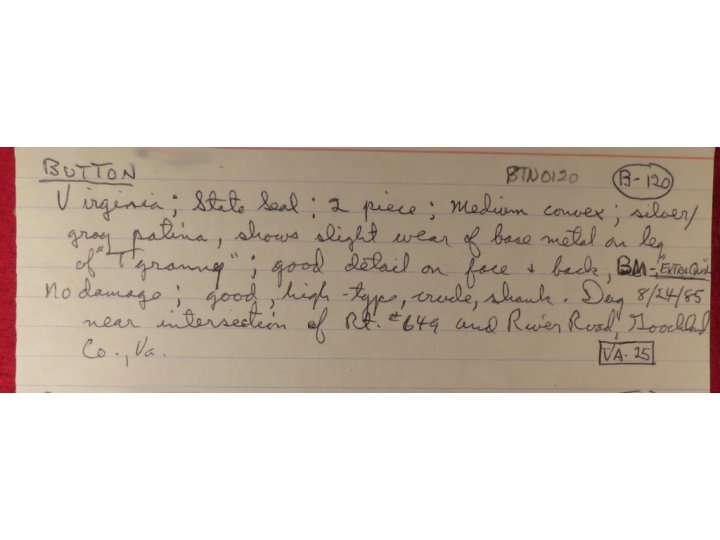 BUTTON BTN0120 B-120
Virginia; State Seal; 2 piece; medium convex; silver/
gray patina, shows slight wear of base metal on leg
of "Tyranny"; good detail on face & back, BM-"Extra Qual"
No damage; good, high-type, crude, shank. Dug 8/24/85
near intersection of Rt. #649 and River Road, Goochland
Co., Va. VA. 25